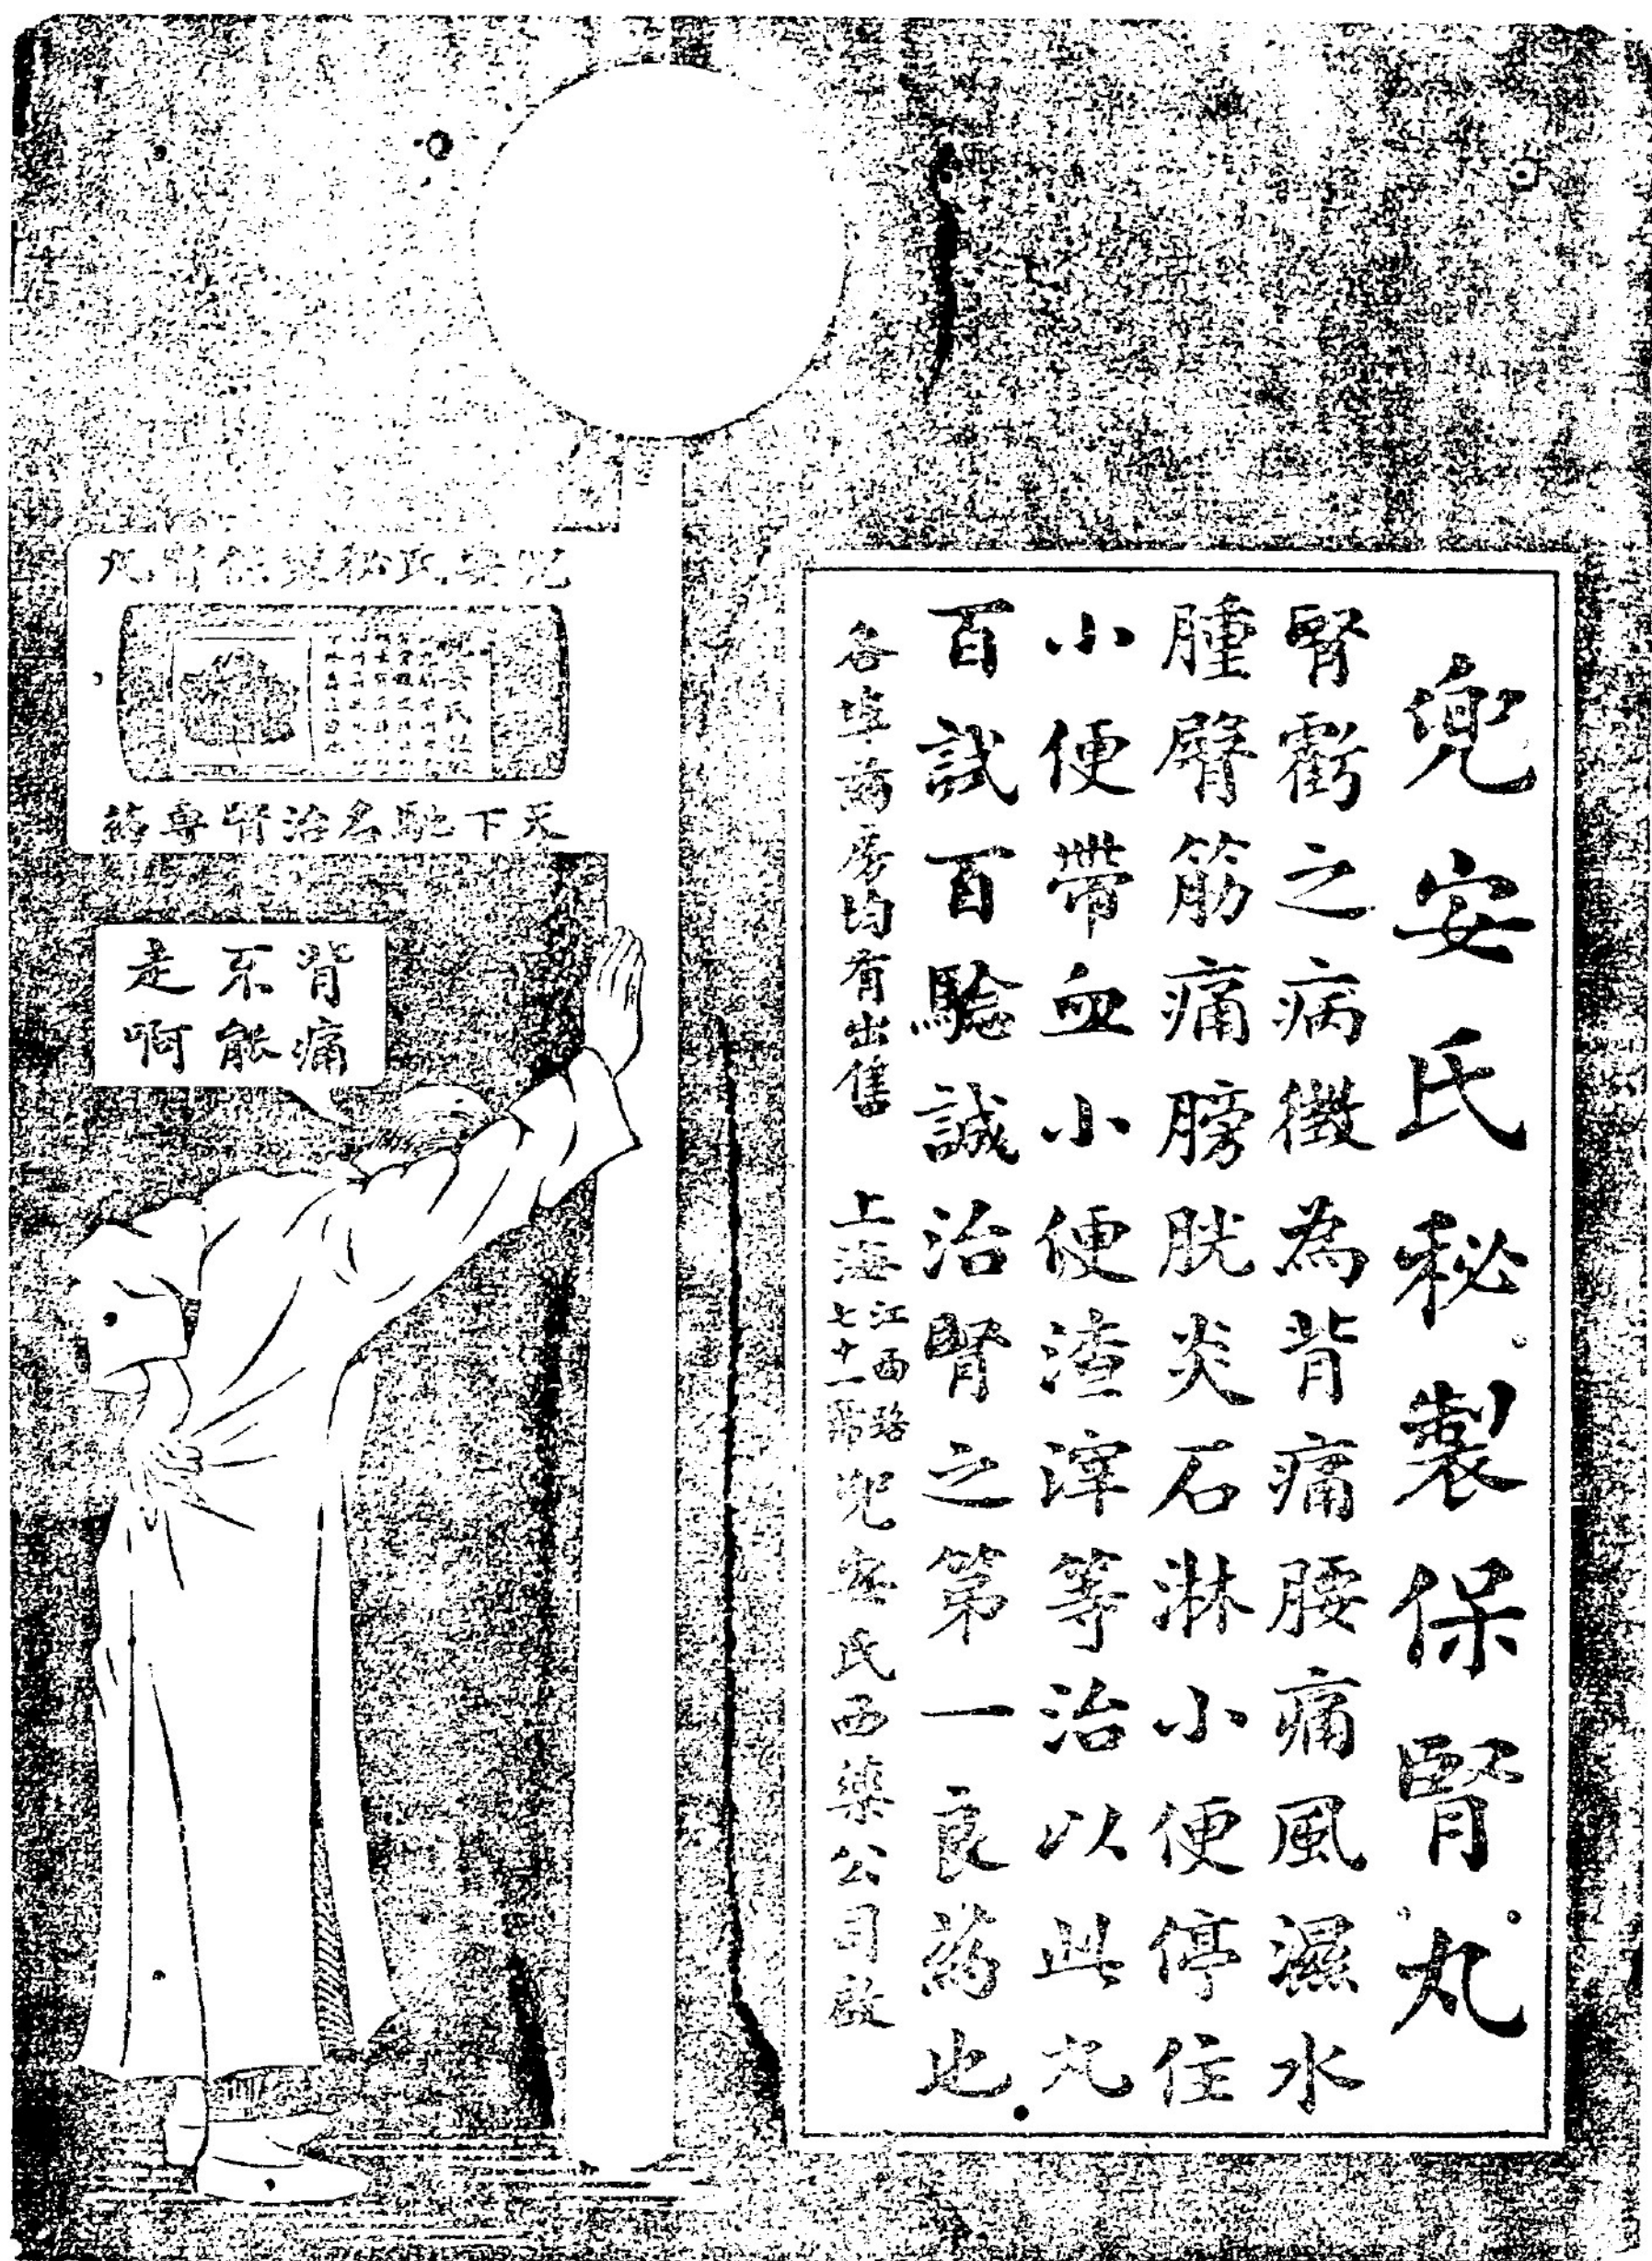 兜安氏秘製保腎丸
腎虧之病徵為背痛腰痛風濕水
腫臂筋痛膀胱炎石淋小便停住
小便帶血小便渣滓等治以此丸
百試百驗誠治腎之第一良葯也
各埠葯房均有出售 上海江西路七十一號兜安氏西藥公司啟
兜安氏秘製保腎丸
天下馳名治腎專葯
背痛
不能
走啊